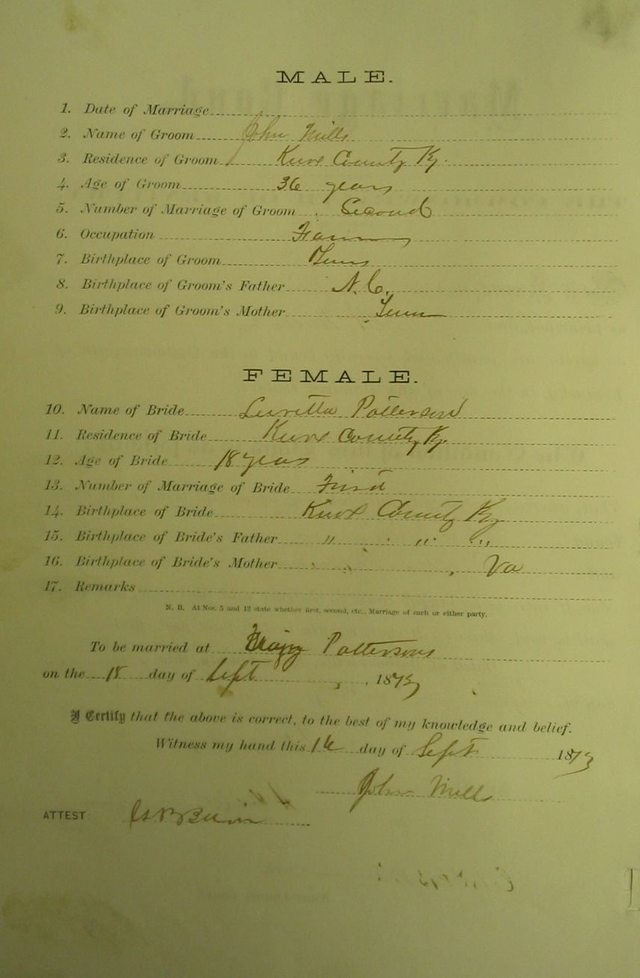 MALE.
1. Date of Marriage
2. Name of Groom John Mills
3. Residence of Groom Knox County Ky.
4. Age of Groom 36 years
5. Number of Marriage of Groom Second
6. Occupation Farmer
7. Birthplace of Groom Tenn
8. Birthplace of Groom's Father N.C.
9. Birthplace of Groom's Mother Tenn
FEMALE.
10. Name of Bride Luretta Patterson
11. Residence of Bride Knox County Ky.
12. Age of Bride 18 years
13. Number of Marriage of Bride First
14. Birthplace of Bride Knox County Ky
15. Birthplace of Bride's Father " " "
16. Birthplace of Bride's Mother Va
17. Remarks
N. B. At Nos. 5 and 13 state whether first, second, etc., Marriage of each or either party.
To be married at Pattersons
on the 18 day of Sept 1873
I Certify that the above is correct, to the best of my knowledge and belief.
Witness my hand this day of Sept 1873
John Mills
ATTEST